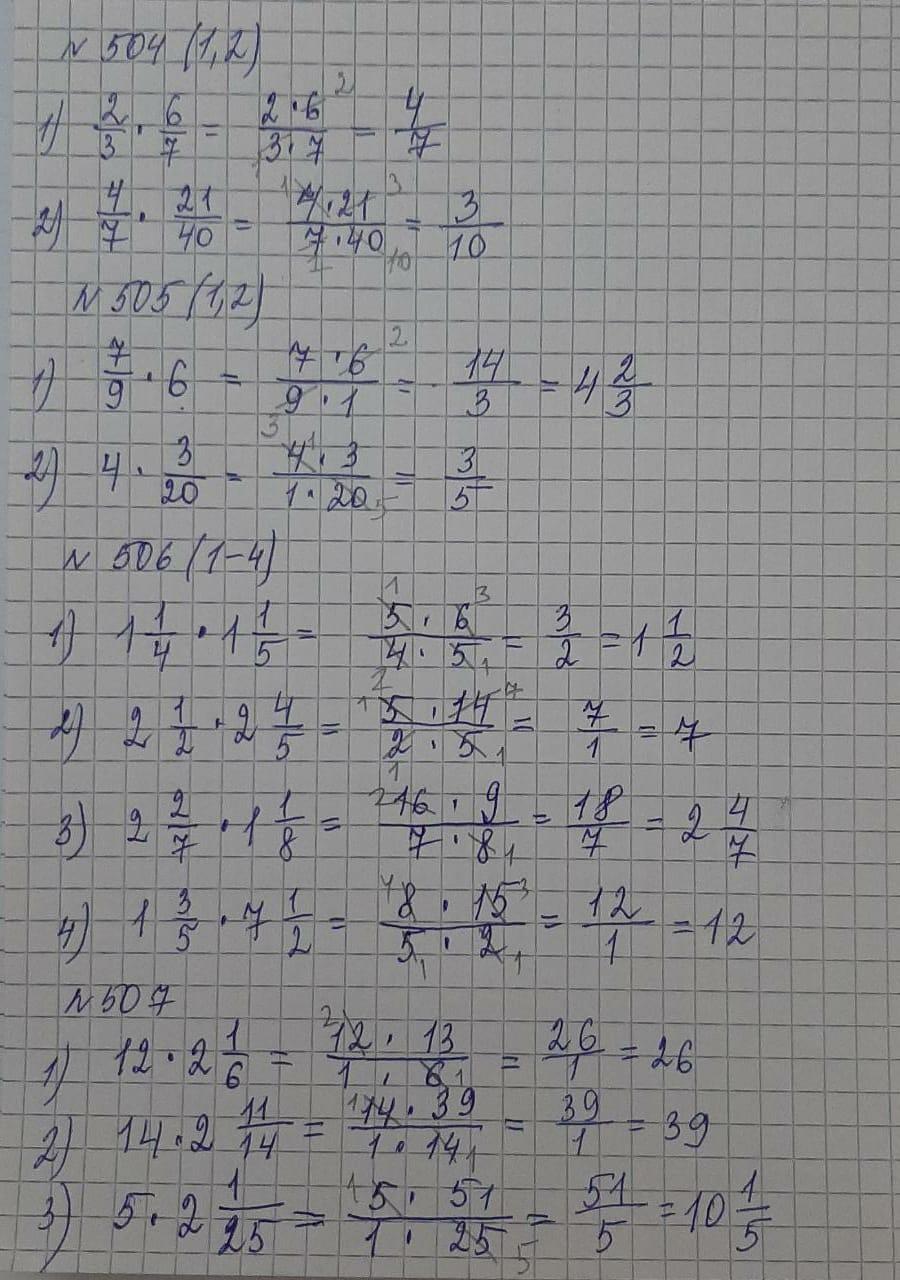 № 504 (1,2)
1) 2/3 · 6/7 = 2·6²/3·7 = 4/7
2) 4/7 · 21/40 = ¹4·21³/7₁·40₁₀ = 3/10
№ 505 (1,2)
1) 7/9 · 6 = 7·6²/9₃·1 = 14/3 = 4 2/3
2) 4 · 3/20 = 4¹·3/1·20₅ = 3/5
№ 506 (1-4)
1) 1 1/4 · 1 1/5 = 5¹·6³/4₂·5₁ = 3/2 = 1 1/2
2) 2 1/2 · 2 4/5 = ¹5·14⁷/2₁·5₁ = 7/1 = 7
3) 2 2/7 · 1 1/8 = ²16·9/7·8₁ = 18/7 = 2 4/7
4) 1 3/5 · 7 1/2 = ⁴8·15³/5₁·2₁ = 12/1 = 12
№ 507
1) 12 · 2 1/6 = ²12·13/1·6₁ = 26/1 = 26
2) 14 · 2 11/14 = ¹14·39/1·14₁ = 39/1 = 39
3) 5 · 2 1/25 = ¹5·51/1·25₅ = 51/5 = 10 1/5